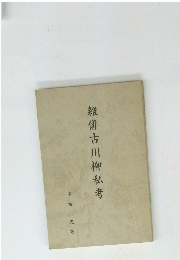 雑俳古川柳私考